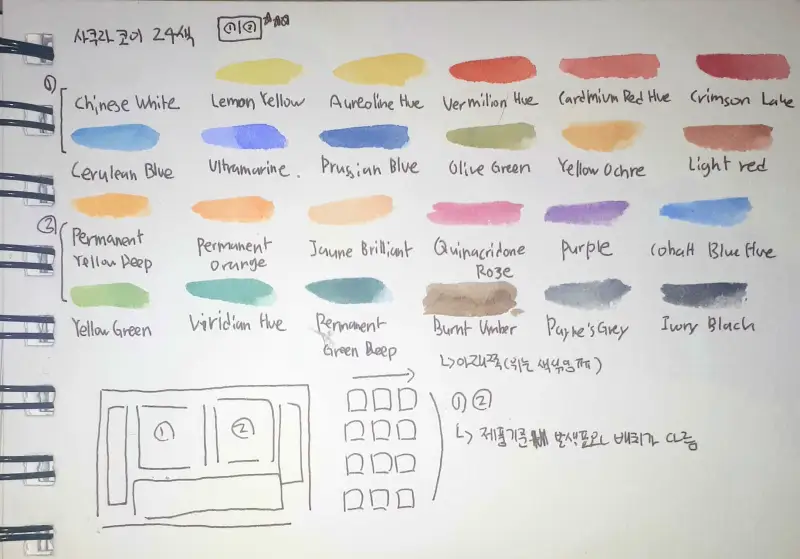 사쿠라 코이 24색 ①②
① Chinese White Lemon Yellow Aureoline Hue Vermilion Hue Cardmium Red Hue Crimson Lake
Cerulean Blue Ultramarine. Prussian Blue Olive Green Yellow Ochre Light red
② Permanent Yellow Deep Permanent Orange Jaune Brilliant Quinacridone Roze Purple Cobalt Blue Hue
Yellow Green Viridian Hue Permanent Green Deep Burnt Umber Payne's Grey Ivory Black
↳아래쪽(위는 색섞임)
① ②
① ②
↳ 제품기준 발색표와 배치가 다름